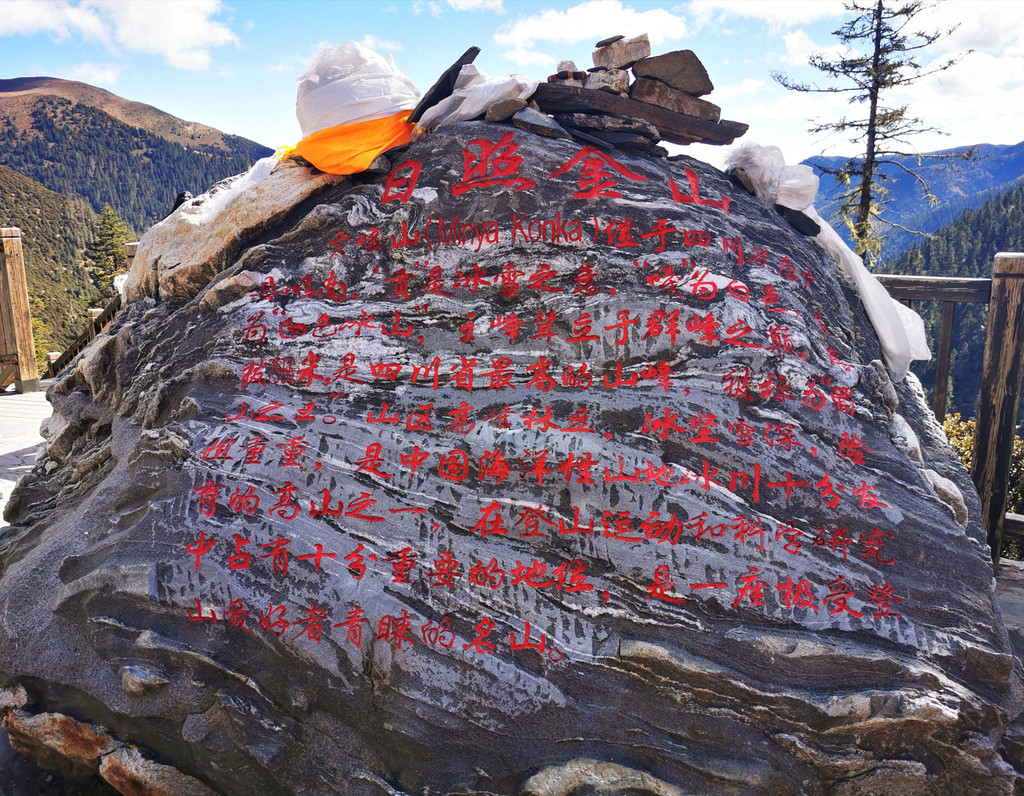 日照金山
贡嘎山(Minya Konka)位于四川
贡是冰雪之意，"嘎"为白色
为白色冰山，主峰耸立于群峰之巅，
米，是四川省最高的山峰，被称为蜀
山之王。山区高峰林立，冰坚雪深，险
阻重重，是中国海洋性山地冰川十分发
育的高山之一，在登山运动和科学研究
中占有十分重要的地位，是一座极受登
山爱好者青睐的名山。